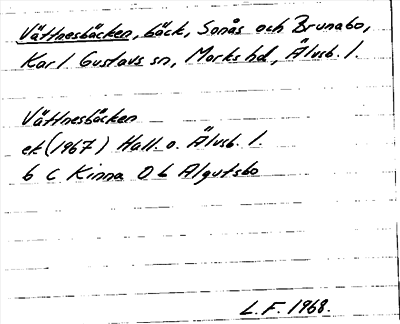 Vättnesbäcken, bäck, Sonås och Brunabo,
Karl Gustavs sn, Marks hd, Älvsb. l.
Vättnesbäcken
ek (1967) Hall. o. Älvsb. l.
6 C Kinna 0 b Algutsbo
L.F. 1968.